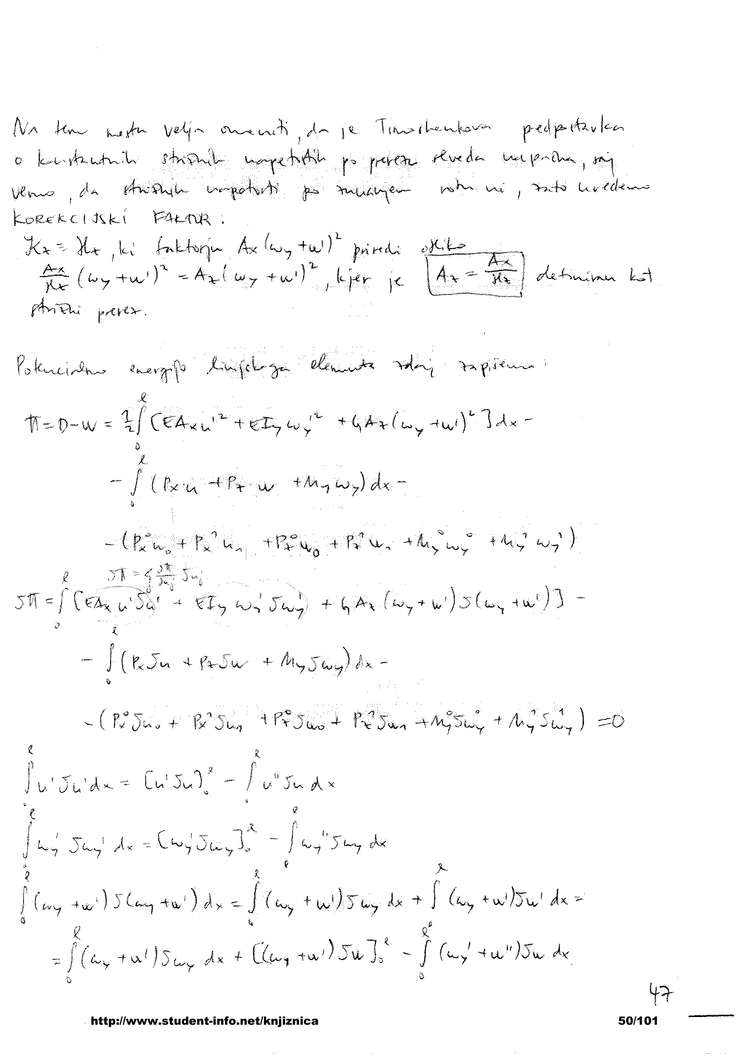 Na tem mestu velja omeniti, da je Timoshenkova predpostavka
o konstantnih strižnih napetostih po prerezu seveda napačna, saj
vemo, da strižnih napetosti po zunanjem robu ni, zato uvedemo
KOREKCIJSKI FAKTOR:
ϰz = ϰz, ki faktorju Ax(ωy+w')² priredi obliko
Ax/ϰz (ωy+w')² = Az(ωy+w')², kjer je Az = Ax/ϰz definiran kot
strižni prerez.
Potencialno energijo linijskega elementa zdaj zapišemo:
Π=D-W = 1/2 ∫₀ˡ [EAxu'² + EIyωy'² + GAz(ωy+w')²]dx -
- ∫₀ˡ (Px·u + Pz·w + Myωy)dx -
- (Px⁰u₀ + Px¹u₁ + Pz⁰w₀ + Pz¹w₁ + My⁰ωy⁰ + My¹ωy¹)
δΠ = ∫₀ˡ [EAx u'δu' + EIy ωy'δωy' + GAz(ωy+w')δ(ωy+w')] -
- ∫₀ˡ (Pxδu + Pzδw + Myδωy)dx -
- (Px⁰δu₀ + Px¹δu₁ + Pz⁰δw₀ + Pz¹δw₁ + My⁰δωy⁰ + My¹δωy¹) = 0
∫₀ˡ u'δu'dx = [u'δu]₀ˡ - ∫₀ˡ u''δu dx
∫₀ˡ ωy'δωy' dx = [ωy'δωy]₀ˡ - ∫₀ˡ ωy''δωy dx
∫₀ˡ (ωy+w')δ(ωy+w')dx = ∫₀ˡ (ωy+w')δωy dx + ∫₀ˡ (ωy+w')δw' dx =
= ∫₀ˡ (ωy+w')δωy dx + [(ωy+w')δw]₀ˡ - ∫₀ˡ (ωy'+w'')δw dx
47
http://www.student-info.net/knjiznica
50/101